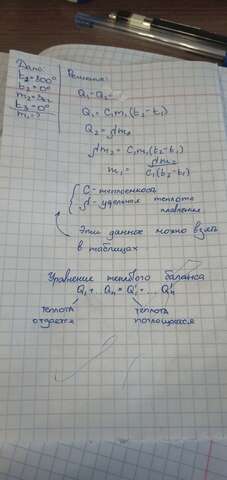 Дано:
Решение:
t₁=300°
t₂=0°
m₂=3кг
t₃=0°
m₁=?
Q₁=Q₂
Q₁ = C₁m₁(t₂-t₁)
Q₂ = λm₂
λm₂ = C₁m₁(t₂-t₁)
m₁ = λm₂ / C₁(t₂-t₁)
С - теплоемкость
λ - удельная теплота
плавления
Эти данные можно взять
в таблицах
Уравнение теплового баланса
Q₁+...Qₙ = Q₁'+...Qₙ'
теплота теплота
отдается поглощается